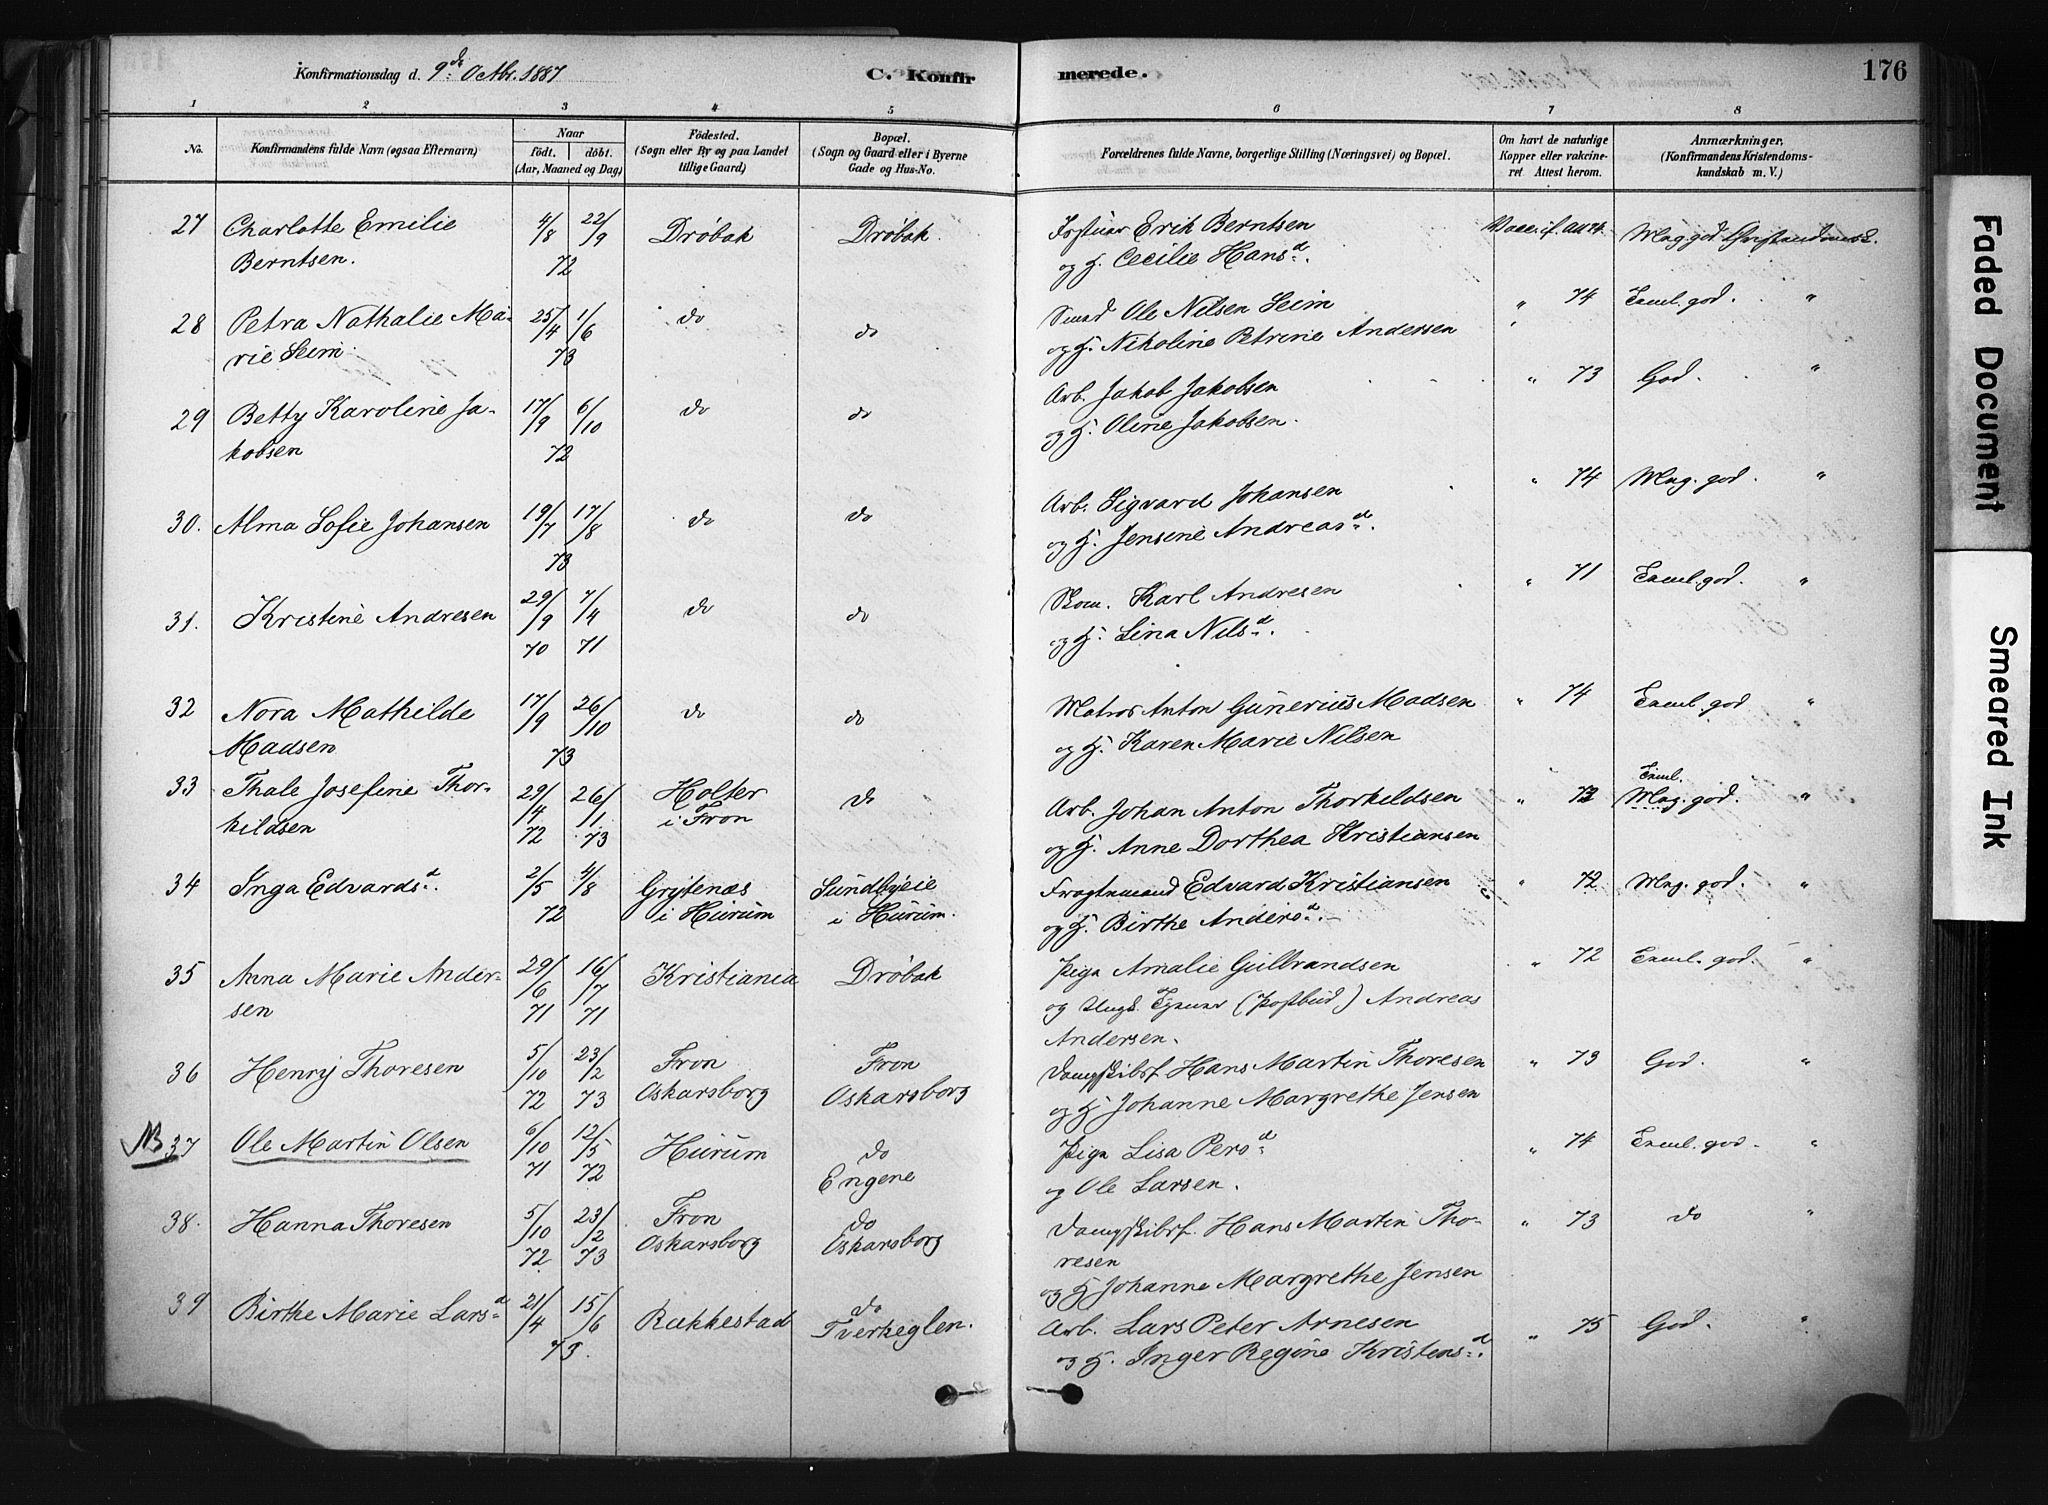 Konfirmationsdag d. 9de Octbr. 1887 C. Konfirmerede. 176
1 2 3 4 5 6 7 8
No. Konfirmandens fulde Navn (ogsaa Efternavn) Naar födt. döbt. (Aar, Maaned og Dag) Födested. (Sogn eller By og paa Landet tillige Gaard) Bopæl. (Sogn og Gaard eller i Byerne Gade og Hus-No. Forœldrenes fulde Navne, borgerlige Stilling (Næringsvei) og Bopæl. Om havt de naturlige Kopper eller vakcineret Attest herom. Anmærkninger, (Konfirmandens Kristendomskundskab m. V.)
27 Charlotte Emilie 4/8 22/9 Dröbak Dröbak. Erik Berntsen Vacc. if. Att 74 Mag. god Christendomsk.
Berntsen. 72 og H. Cecilie Hansd.
28 Petra Nathalie Ma- 25/4 1/6 do do Smed Ole Nilsen Seim " 74 Exml. god. "
rie Seim. 73 og H. Nikoline Petrine Andersen
29 Betty Karoline Ja- 17/9 6/10 do do Arb. Jakob Jakobsen " 73 God. "
kobsen 72 og H. Oline Jakobsen.
30. Alma Sofie Johansen 19/7 17/8 do do Arb. Sigvard Johansen " 74 Mag. god. "
73 og H. Jensine Andreasd.
31. Kristine Andresen 29/9 7/4 do do Skom. Karl Andresen " 71 Exml. god. "
70 71 og H. Lina Nilsd.
32 Nora Mathilde 17/9 26/10 do do Matros Anton Gunerius Madsen " 74 Exml. god "
Madsen 73 og H. Karen Marie Nilsen
33 Thale Josefine Thor- 29/4 26/1 Holter do Arb. Johan Anton Thorkildsen " 72 Exml. Mag. god. "
kildsen 72 73 i Fron og H. Anne Dorthea Kristiansen
34 Inga Edvardsd. 2/5 4/8 Grytenæs Sundbyeie Fragtemand Edvard Kristiansen " 72 Mag. god. "
72 i Hurum i Hurum. og H. Birthe Andersd.
35 Anna Marie Ander- 29/6 16/7 Kristiania Dröbak Pige Amalie Gulbrandsen " 72 Exml. god. "
sen 71 71 og Ungk. Tjener (Postbud) Andreas
Andersen.
36 Henry Thoresen 5/10 23/2 Fron Fron Dampskibsf. Hans Martin Thoresen " 73 God. "
72 73 Oskarsborg Oskarsborg og H Johanne Margrethe Jensen
NB 37 Ole Martin Olsen 6/10 12/5 Hurum do Pige Lisa Persd " 74 Exml. god. "
71 72 Engene og Ole Larsen.
38. Hanna Thoresen 5/10 23/2 Fron do Dampskibsf. Hans Martin Tho- " 73 do "
72 73 Oskarsborg Oskarsborg resen
og H Johanne Margrethe Jensen
39 Birthe Marie Larsd 21/4 15/6 Rakkestad do Arb. Lars Peter Arnesen " 75 God. "
73. Tverkeglen. og H. Inger Regine Kristensd.
Faded Document
Smeared Ink